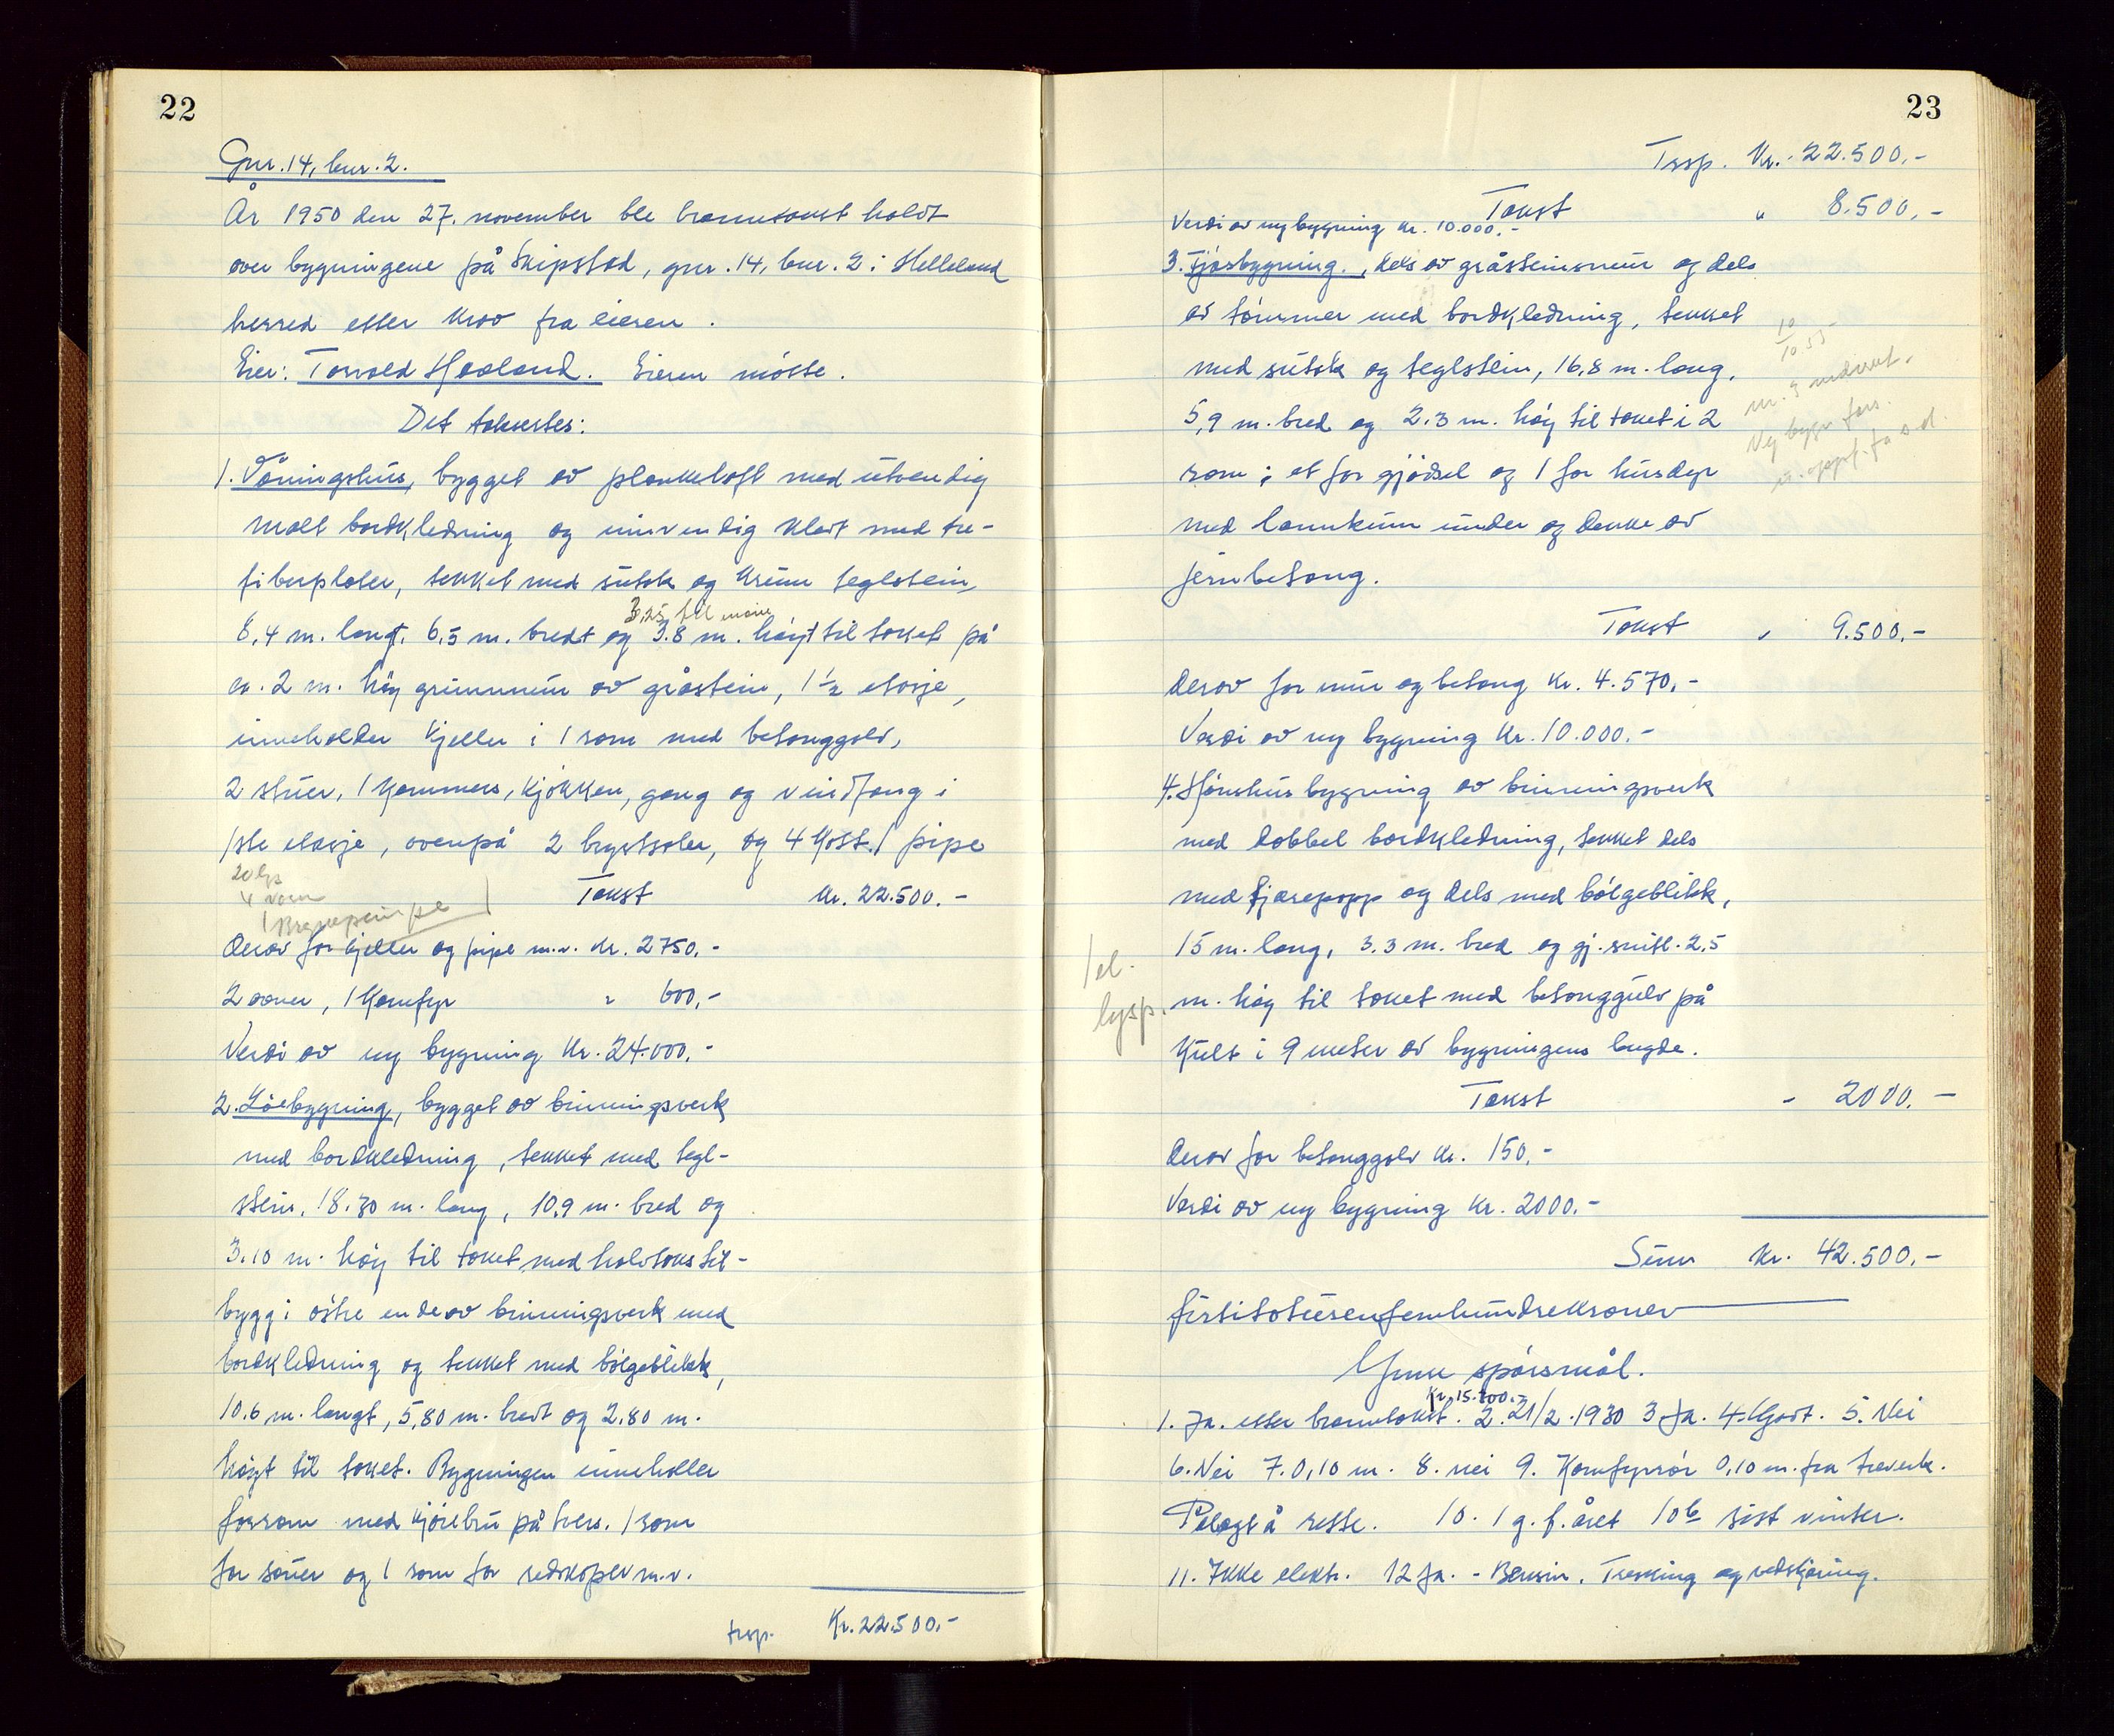 22
Gnr. 14, bnr. 2.
År 1950 den 27. november ble branntakst holdt
over bygningene på Skipstad, gnr. 14, bnr. 2 i Helleland
herred etter krav fra eieren.
Eier: Torvald Haaland. Eieren møtte.
Det takstertes:
1. Våningshus, bygget av plankelaft med utvendig
malt bordkledning og innvendig kledt med tre-
fiberplater, tekket med sutak og krum teglstein,
3,25 til møne
8,4 m. langt, 6,5 m. bredt og 3.8 m. høyt til taket på
ca. 2 m. høy grunnmur av gråstein, 1 1/2 etasje,
inneholder kjeller i 1 rom med betonggolv,
2 stuer, 1 kammers, kjøkken, gang og vindfang i
1ste etasje, ovenpå 2 brystsaler, og 4 kott. 1 pipe
20 lys
4 varm
1 Bryggepanne
Takst Kr. 22.500.-
Derav for kjeller og pipe m.v. kr. 2750,-
2 ovner, 1 komfyr " 600,-
Verdi av ny bygning kr. 24.000,-
2. Løebygning, bygget av binningsverk
med bordkledning, tekket med tegl-
stein, 18.30 m. lang, 10,9 m. bred og
3.10 m. høy til taket med halvtaks til-
bygg i østre ende av binningsverk med
bordkledning og tekket med bølgeblikk,
10.6 m. langt, 5,80 m. bredt og 2.80 m.
høyt til taket. Bygningen inneholder
forrom med kjørebru på tvers. 1 rom
for sauer og 1 rom for redskaper m.v.
trsp. Kr. 22.500.-
23
Trsp. Kr. 22.500.-
Takst " 8.500,-
Verdi av ny bygning kr. 10.000.-
3. Fjøsbygning, dels av gråsteinsmur og dels
av tømmer med bordkledning, tekket
med sutak og teglstein, 16,8 m. lang,
5,9 m. bred og 2.3 m. høy til taket i 2
rom; et for gjødsel og 1 for husdyr
med lannkum under og dekke av
jernbetong.
10
10.55
nr. 3 nedrevet.
Ny bygn. fors.
Takst " 9.500.-
Derav for mur og betong kr. 4.570,-
Verdi av ny bygning kr. 10.000.-
4. Hønshusbygning av binningsverk
med dobbel bordkledning, tekket dels
med tjærepapp og dels med bølgeblikk,
15 m. lang, 3.3 m. bred og gj.snitl. 2.5
m. høy til taket med betonggulv på
kult i 9 meter av bygningens lengde.
1 el.
lysp.
Takst - 2000.-
Derav for betonggolv kr. 150.-
Verdi av ny bygning kr. 2000.-
Sum kr. 42.500.-
førtitotusenfemhundrekroner
Ymse spørsmål.
Kr. 15.800.-
1. Ja. etter branntakst. 2. 21/2.1930 3 Ja. 4. Godt. 5. Nei
6. Nei 7. 0,10 m. 8. nei 9. Komfyrrør 0,10 m. fra treverk.
Pålagt å rette. 10. 1 g. f. året 10b sist vinter.
11. Ikke elektr. 12 Ja. - Bensin. Tresking og vedskjæring.